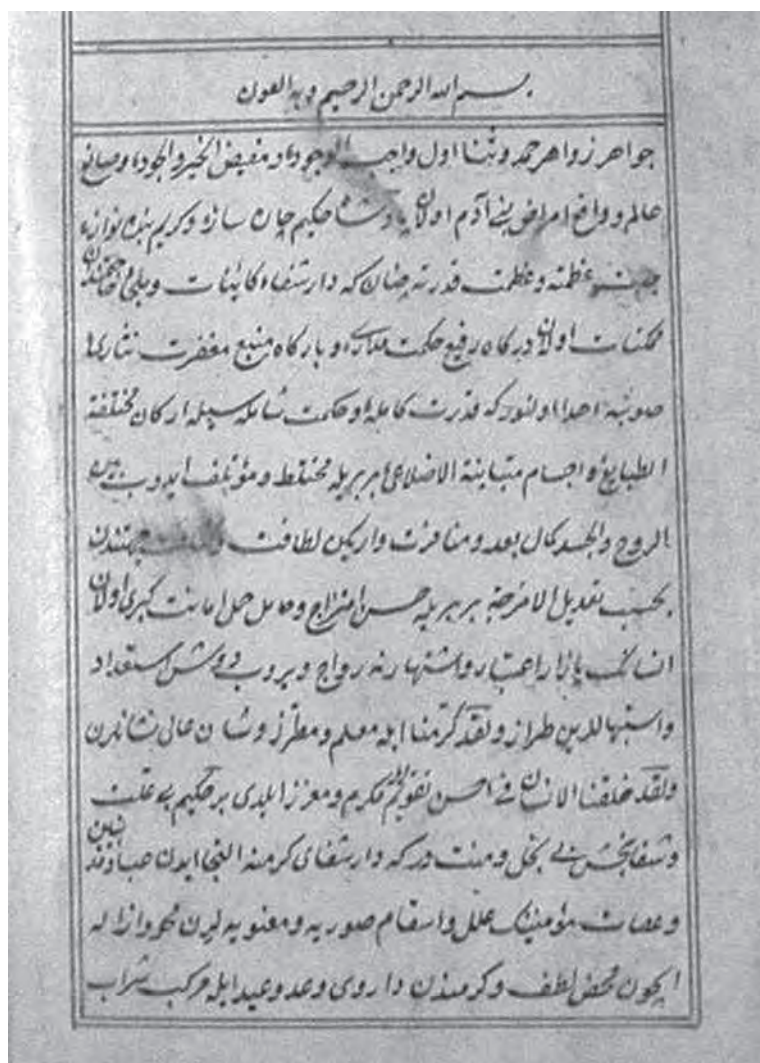 بسم الله الرحمن الرحيم وبه العون
جواهر زواهر حمد وثنا اول واجب الوجود و مفيض الخير والجود و صانع
عالم و دافع امراض بنی آدم اولان پادشاه حكيم چاره ساز و كريم بنده نواز
جلت عظمته وعظمت قدرته حضرتلرينه كه دار شفاء كائنات
ممكنات اولان درگاه رفيع حكمت مدارى و بارگاه منيع مغفرت نثارى
صوبنه اهدا اولنور كه قدرت كامله و حكمت شامله سيله اركان مختلفة
الطبايع و اجسام متباينة الاضلاعى بربريله مختلط و مؤتلف ايدوب بين
الروح والجسد كمال بعد و منافرت واريكن لطافت و جهتندن
بحسب تعديل الامزجه بربريله حسن امتزاج و حامل حمل امانت كبرى اولان
انسانك بازار اعتبار و اشتهارنه رواج ويروب دوش استعداد
و ابتهاللرين طراز ولقد كرمنا ايله معلم و مطرز و شان عالی نشانلرن
ولقد خلقنا الانسان فى احسن تقويم ايله مكرم و معزز ايلدى بر حكيم بى علت
و شفابخش بى بخل و منت در كه دار شفاى كرمنه التجا ايدن عباد
و عصات مؤمنينك علل و اسقام صوريه و معنويه لرين محو و ازاله
ايچون محض لطف و كرمندن داروى وعد و وعيد ايله مركب شراب